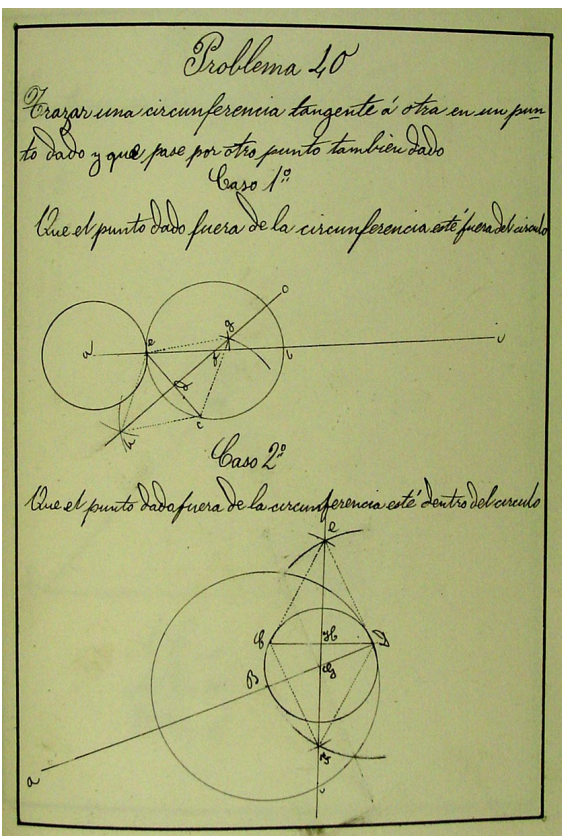 Problema 40
Trazar una circunferencia tangente á otra en un pun-
to dado y que pase por otro punto tambien dado
Caso 1º
Que el punto dado fuera de la circunferencia esté fuera del circulo
o
e
g
a
f
i
d
c
h
Caso 2º
Que el punto dado fuera de la circunferencia esté dentro del circulo
e
H
D
B
a